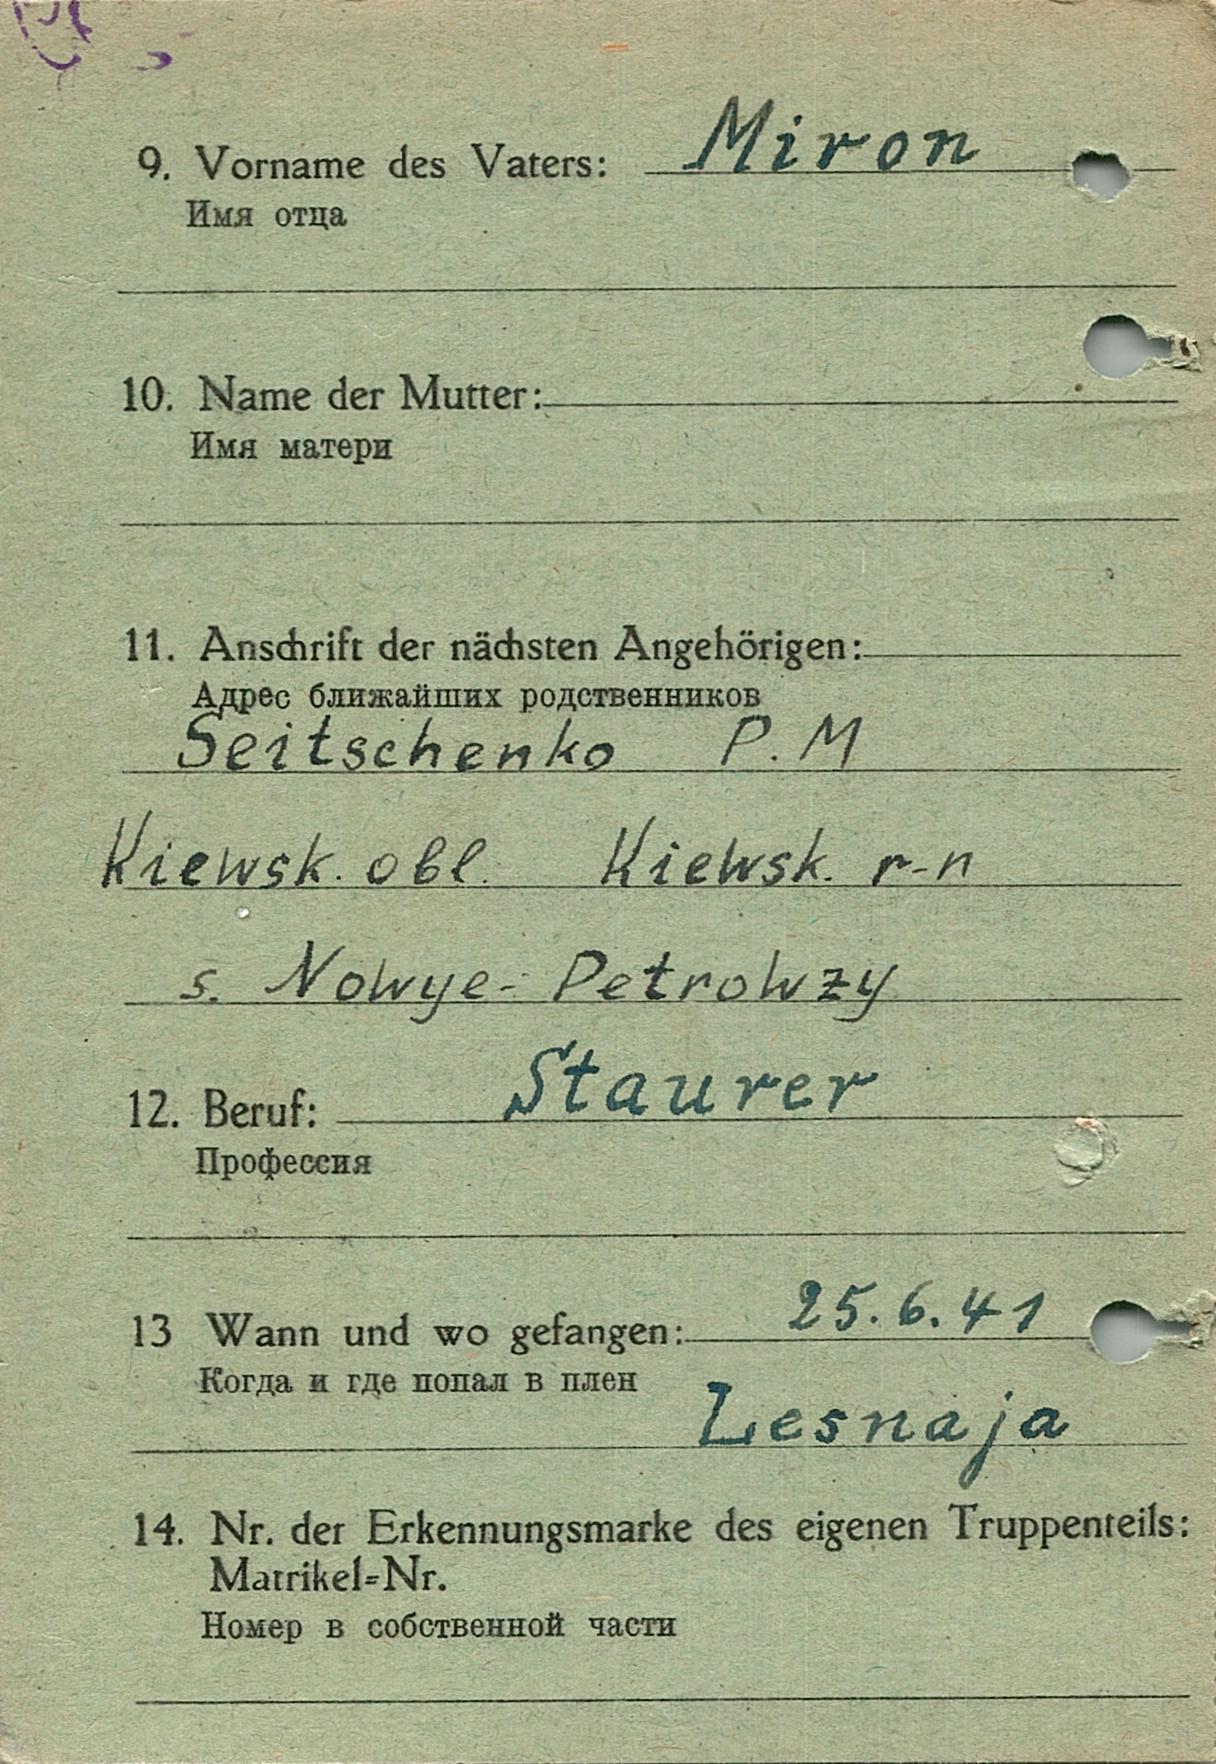 9. Vorname des Vaters: Miron
Имя отца
10. Name der Mutter:
Имя матери
11. Anschrift der nächsten Angehörigen:
Адрес ближайших родственников
Seitschenko P.M
Kiewsk. obl. Kiewsk. r-n
s. Nowye- Petrowzy
12. Beruf: Staurer
Профессия
13 Wann und wo gefangen: 25.6.41
Когда и где попал в плен
Lesnaja
14. Nr. der Erkennungsmarke des eigenen Truppenteils:
Matrikel=Nr.
Номер в собственной части